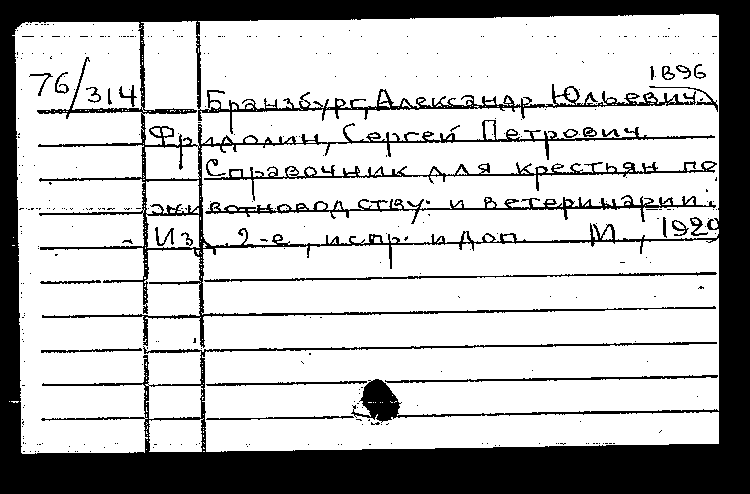 1896
76/314 Бранзбург, Александр Юльевич.
Фридолин, Сергей Петрович.
Справочник для крестьян по
животноводству и ветеринарии.
- Изд. 2-е, испр. и доп. М., 1929